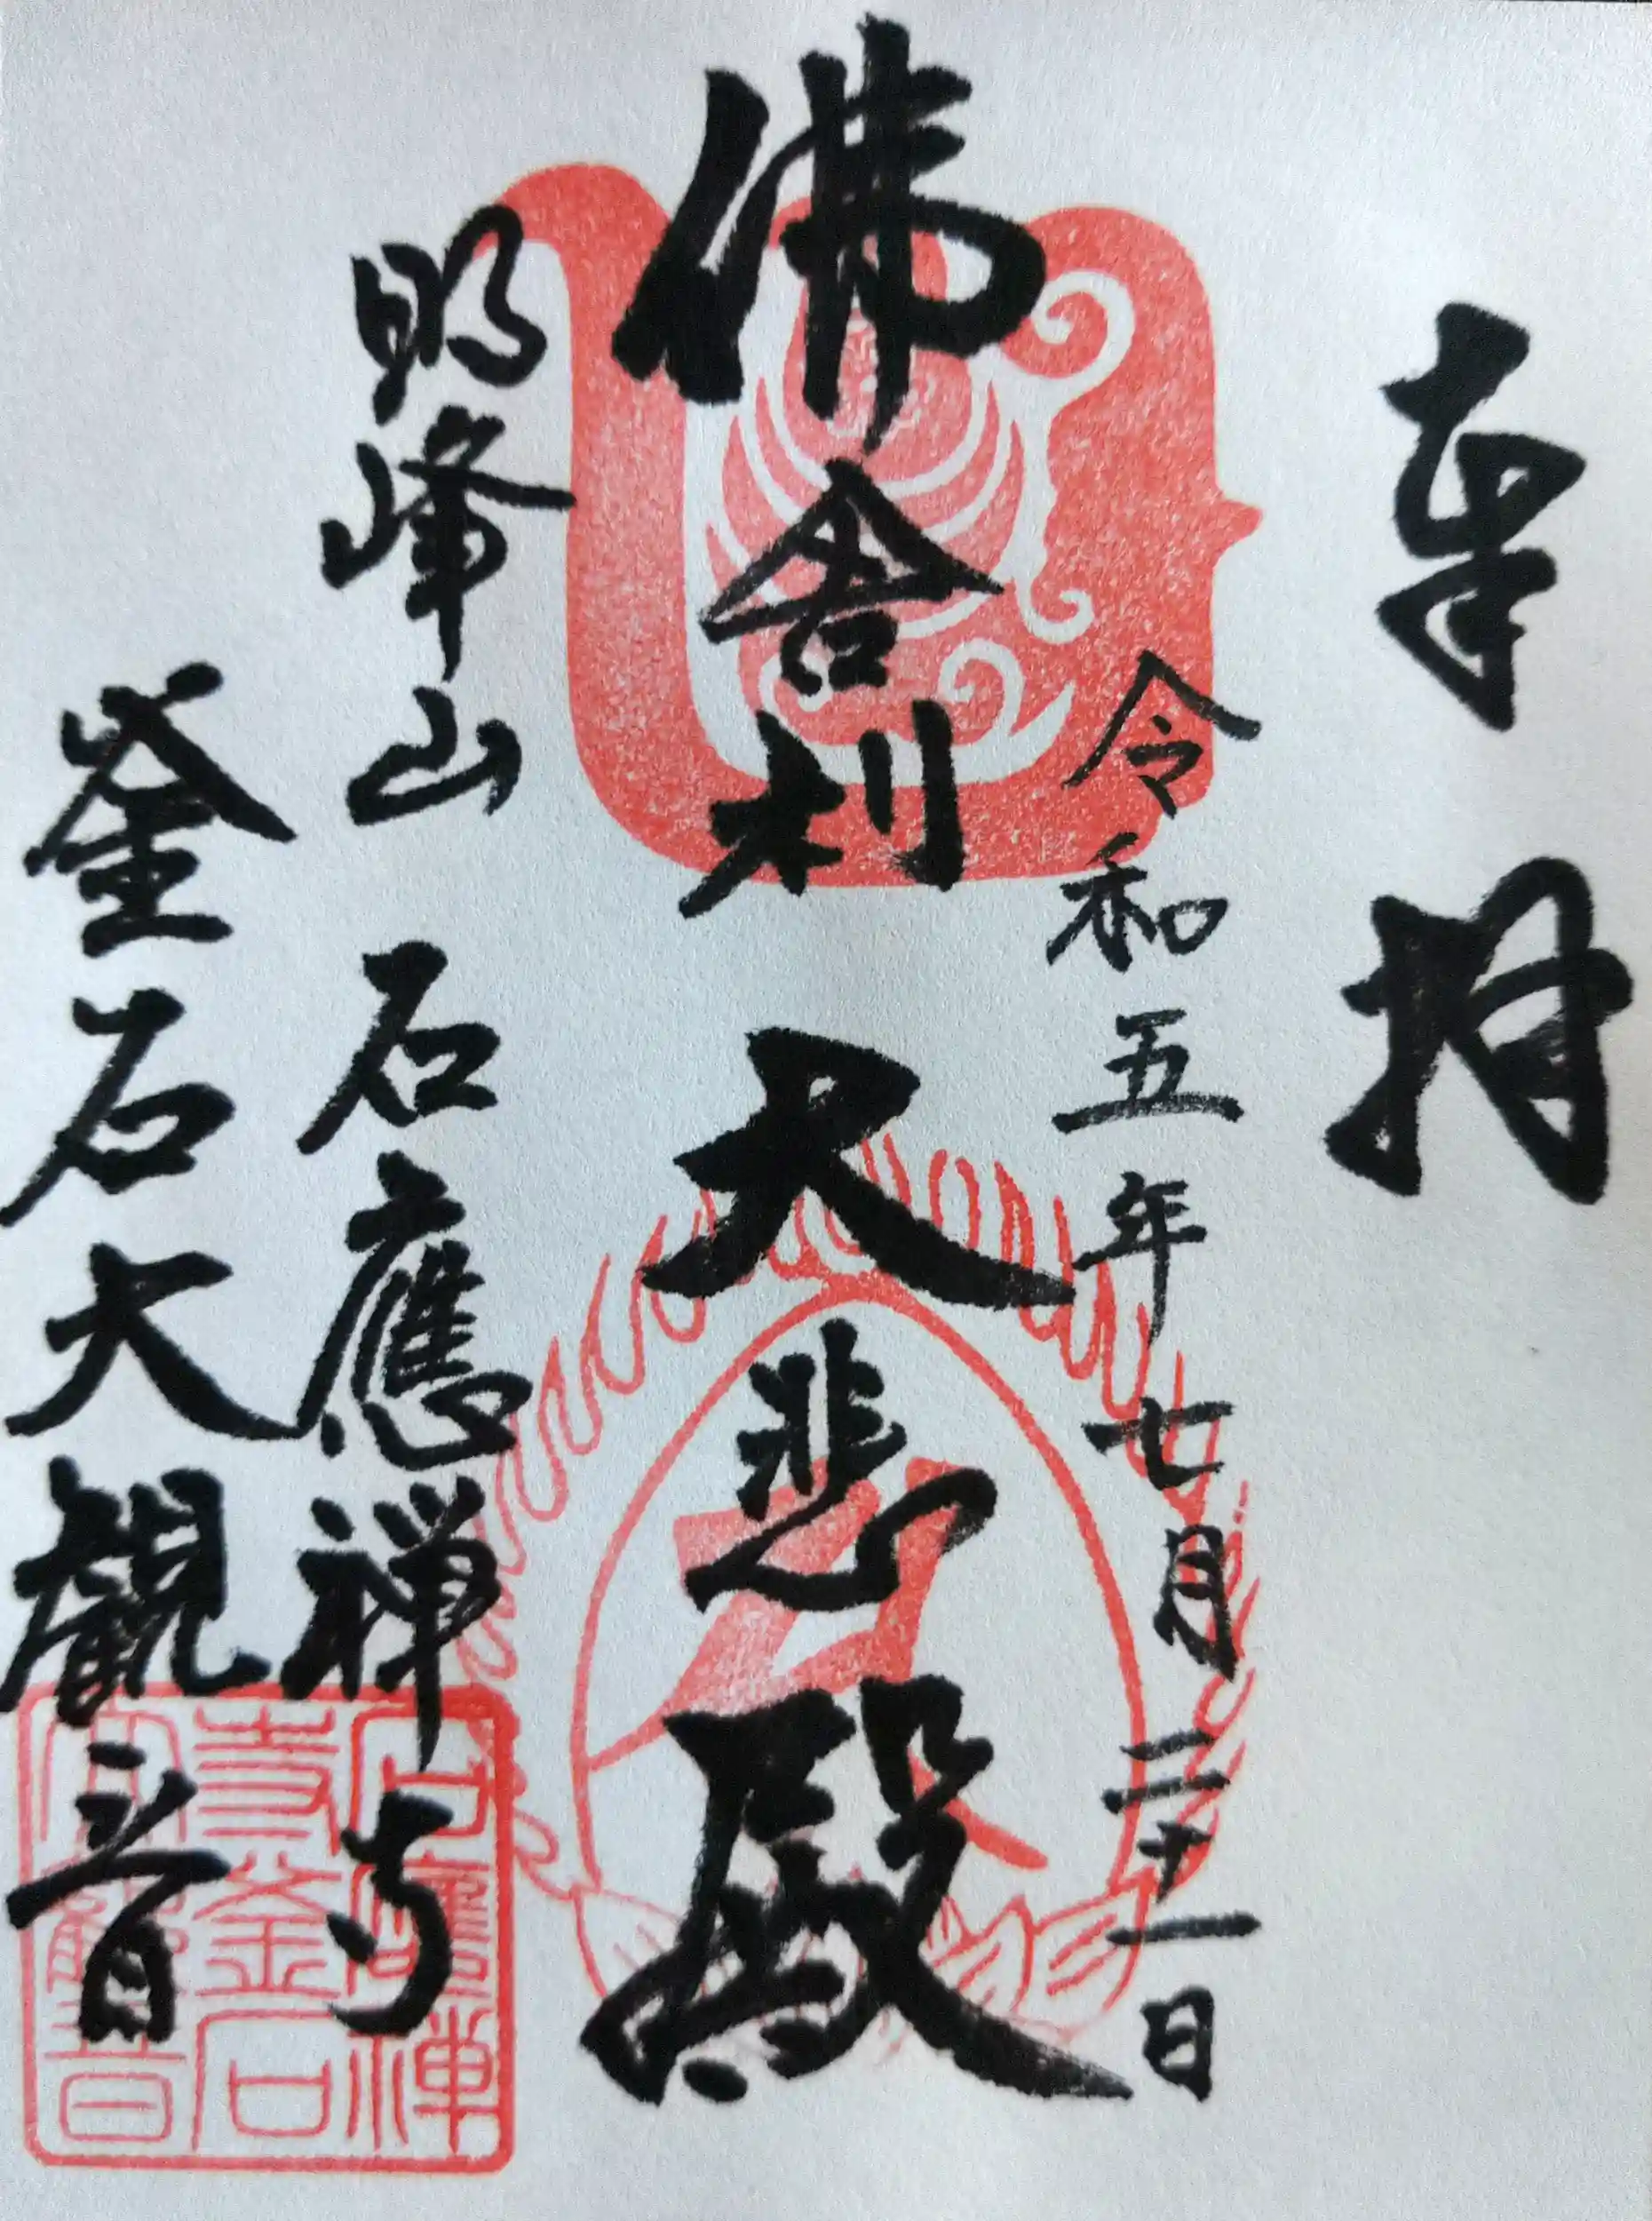 奉拝
令和五年七月二十一日
佛舎利大悲殿
明峰山石應禅寺
釜石大観音
石應禅
寺釜石
大観音